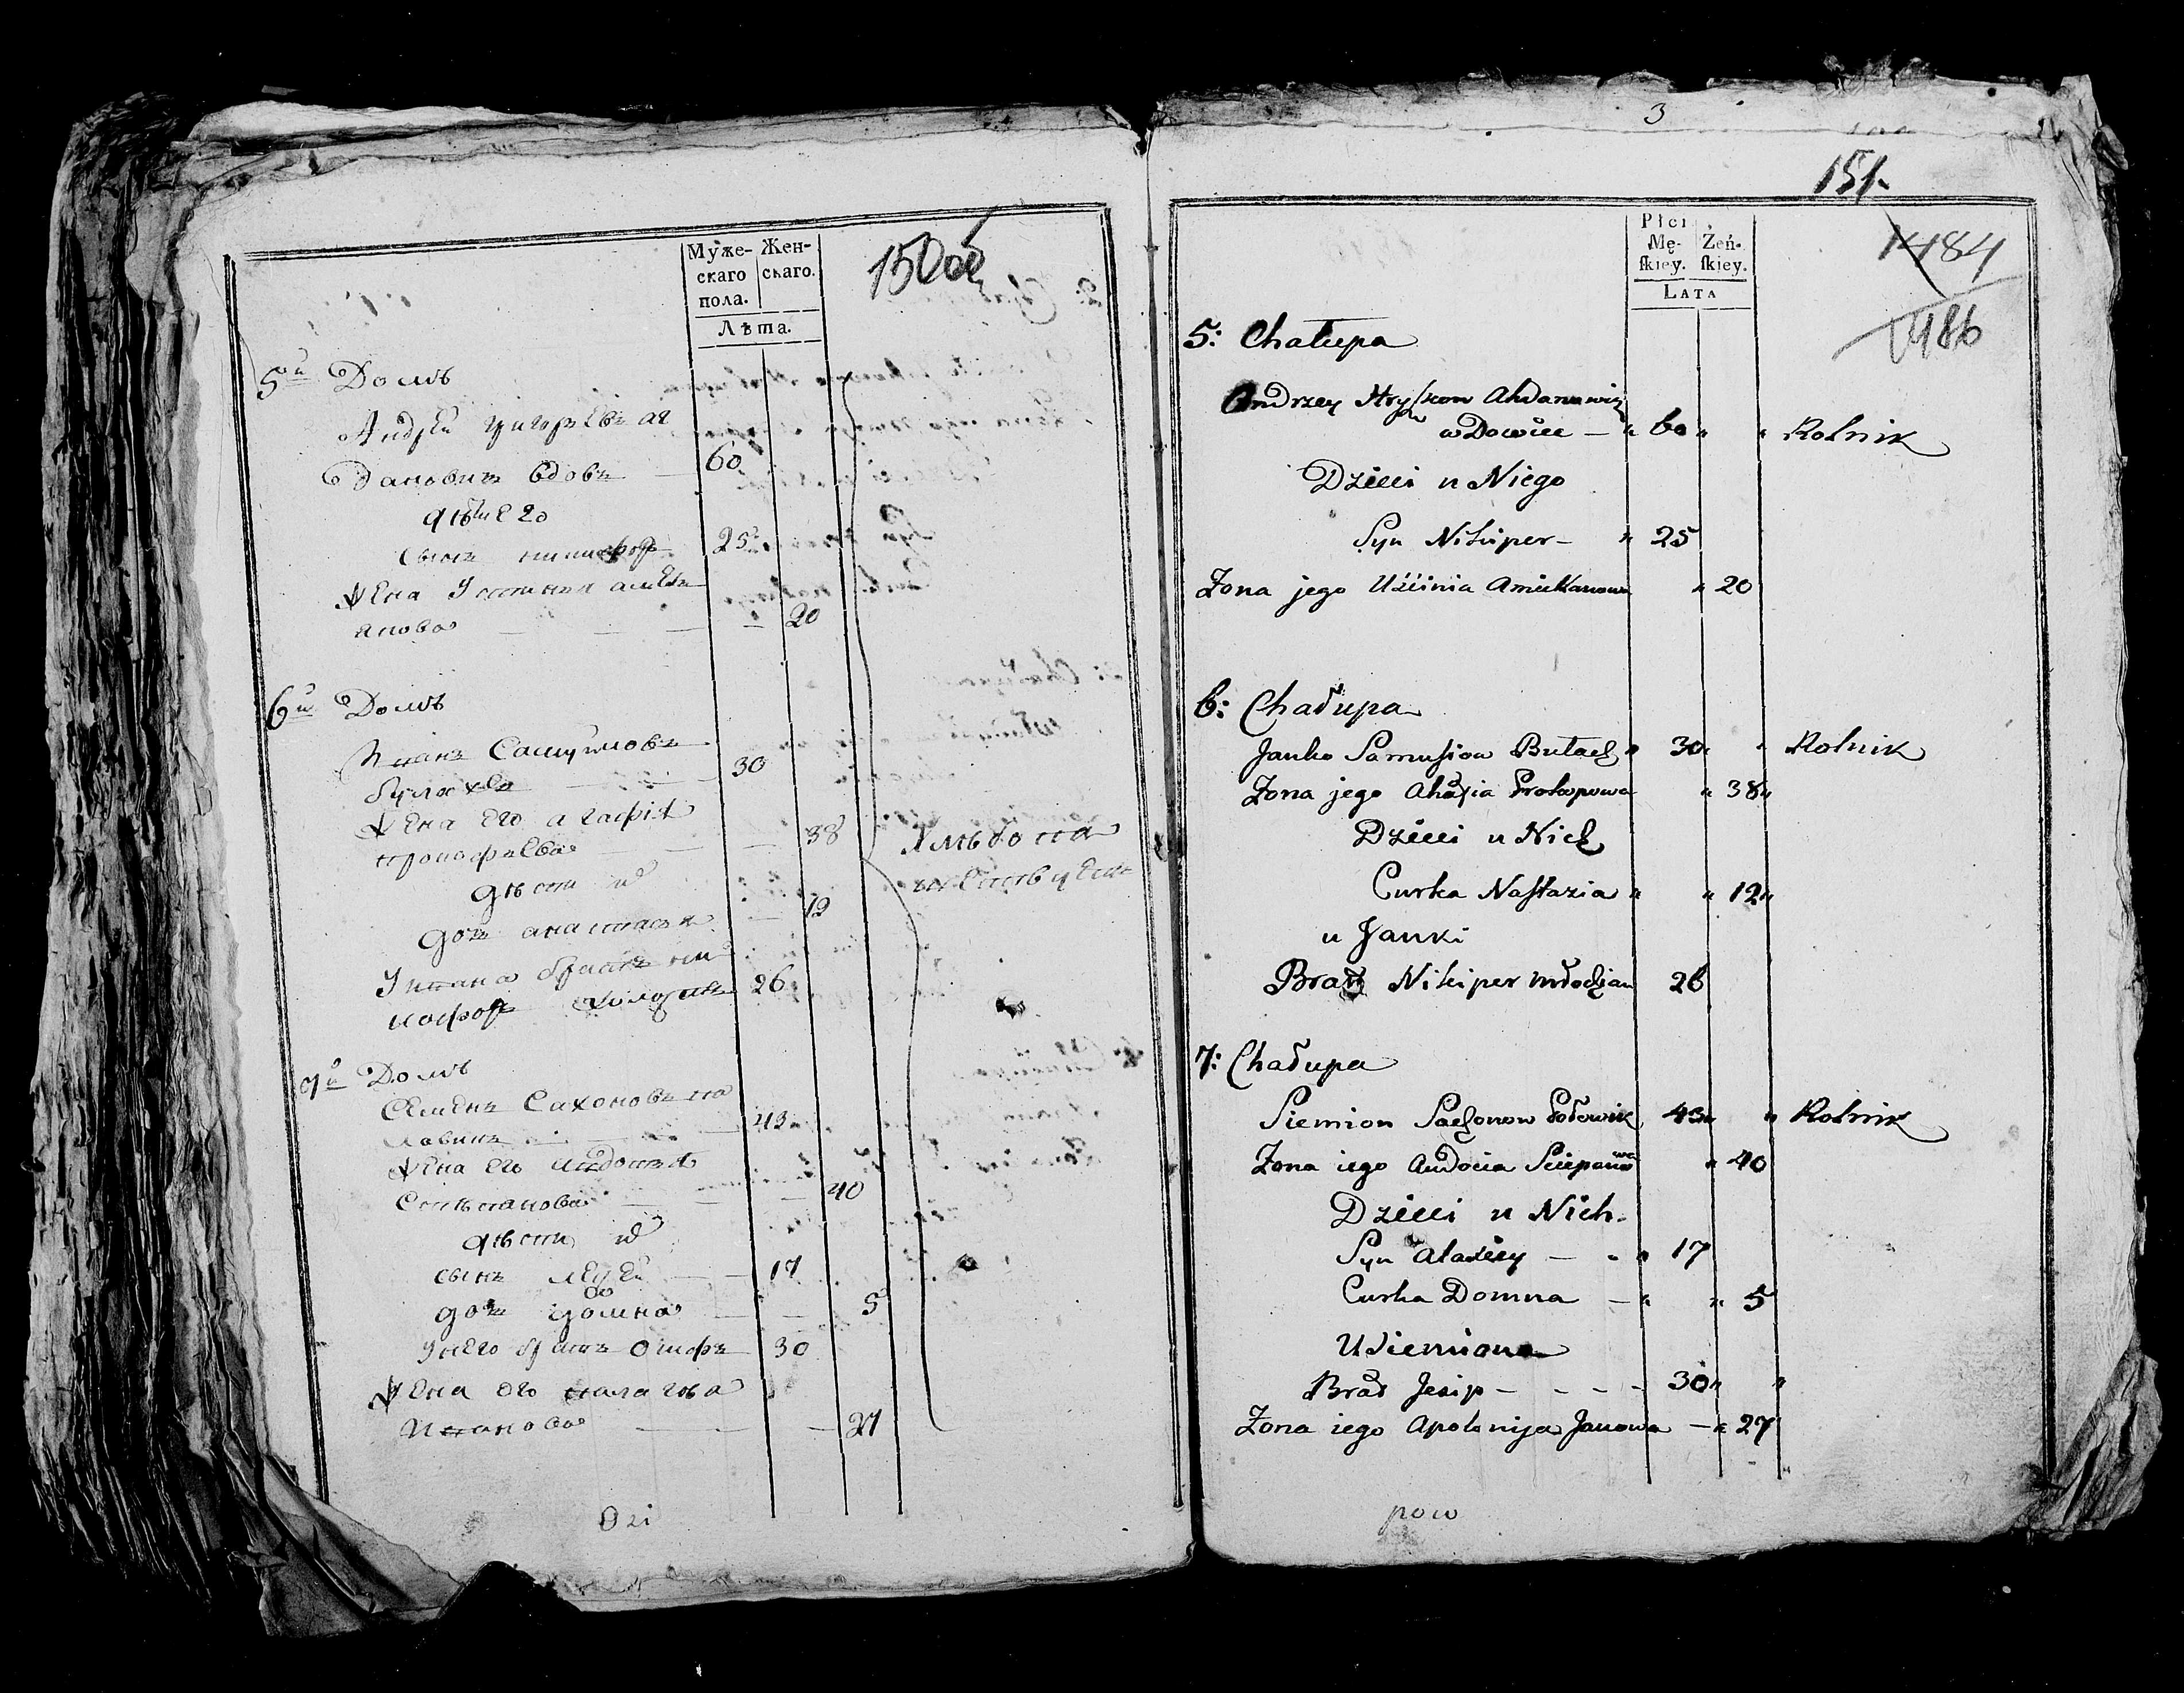 Муже-
скаго
пола.
Жен-
скаго.
Лѣта.
150об
5й Домъ
Андрей Григорьевъ аг
дановичъ вдовъ — 60
дѣти его
сынъ никифоръ 25
Жена Устинья
анова — — — 20
6й Домъ
Иванъ Самуиловъ
булахъ — 30
Жена его агафія
прокофьева — 38
Хлѣбопа
шествуетъ
дѣти их
дочь анастасья — 12
У ивана братъ ни
кофоръ холостъ 26
7й Домъ
Семенъ Сахоновъ по
ловикъ — 43
Жена его авдотья
Степанова — — 40
дѣти их
сынъ — 17
дочь домна — — 5
У него братъ Осифъ 30
Жена его палагѣа
Иванова — — 27
Dzi
3
151.
1484
1486
Płci
Mę-
ſkiey.
Żeń-
ſkiey.
LATA
5: Chałupa
Andrzey Hryſzkow Ahdanowicz
wDowiec — " 60 " " Rolnik
Dzieci u Niego
Syn Nikiper — " 25
Zona jego Uścinia " 20
6: Chałupa
Janko Samusiow Bułach " 30 " " Rolnik
Zona jego Ahafia Prokopowa " 38 "
Dzieci u Nich
Curka Naſtazia " " 12 "
u Janki
Brat Nikiper młodzian 26
7: Chałupa
Siemion Sachonow Połowik 43 " " Rolnik
Zona iego Audocia Sciepanowa " 40
Dzieci u Nich.
Syn Alaxiey — " " 17
Curka Domna — " " 5
U Siemiona
Brat Jesip — - - - 30 " "
Zona iego Apolonija Janowa — " 27
pow